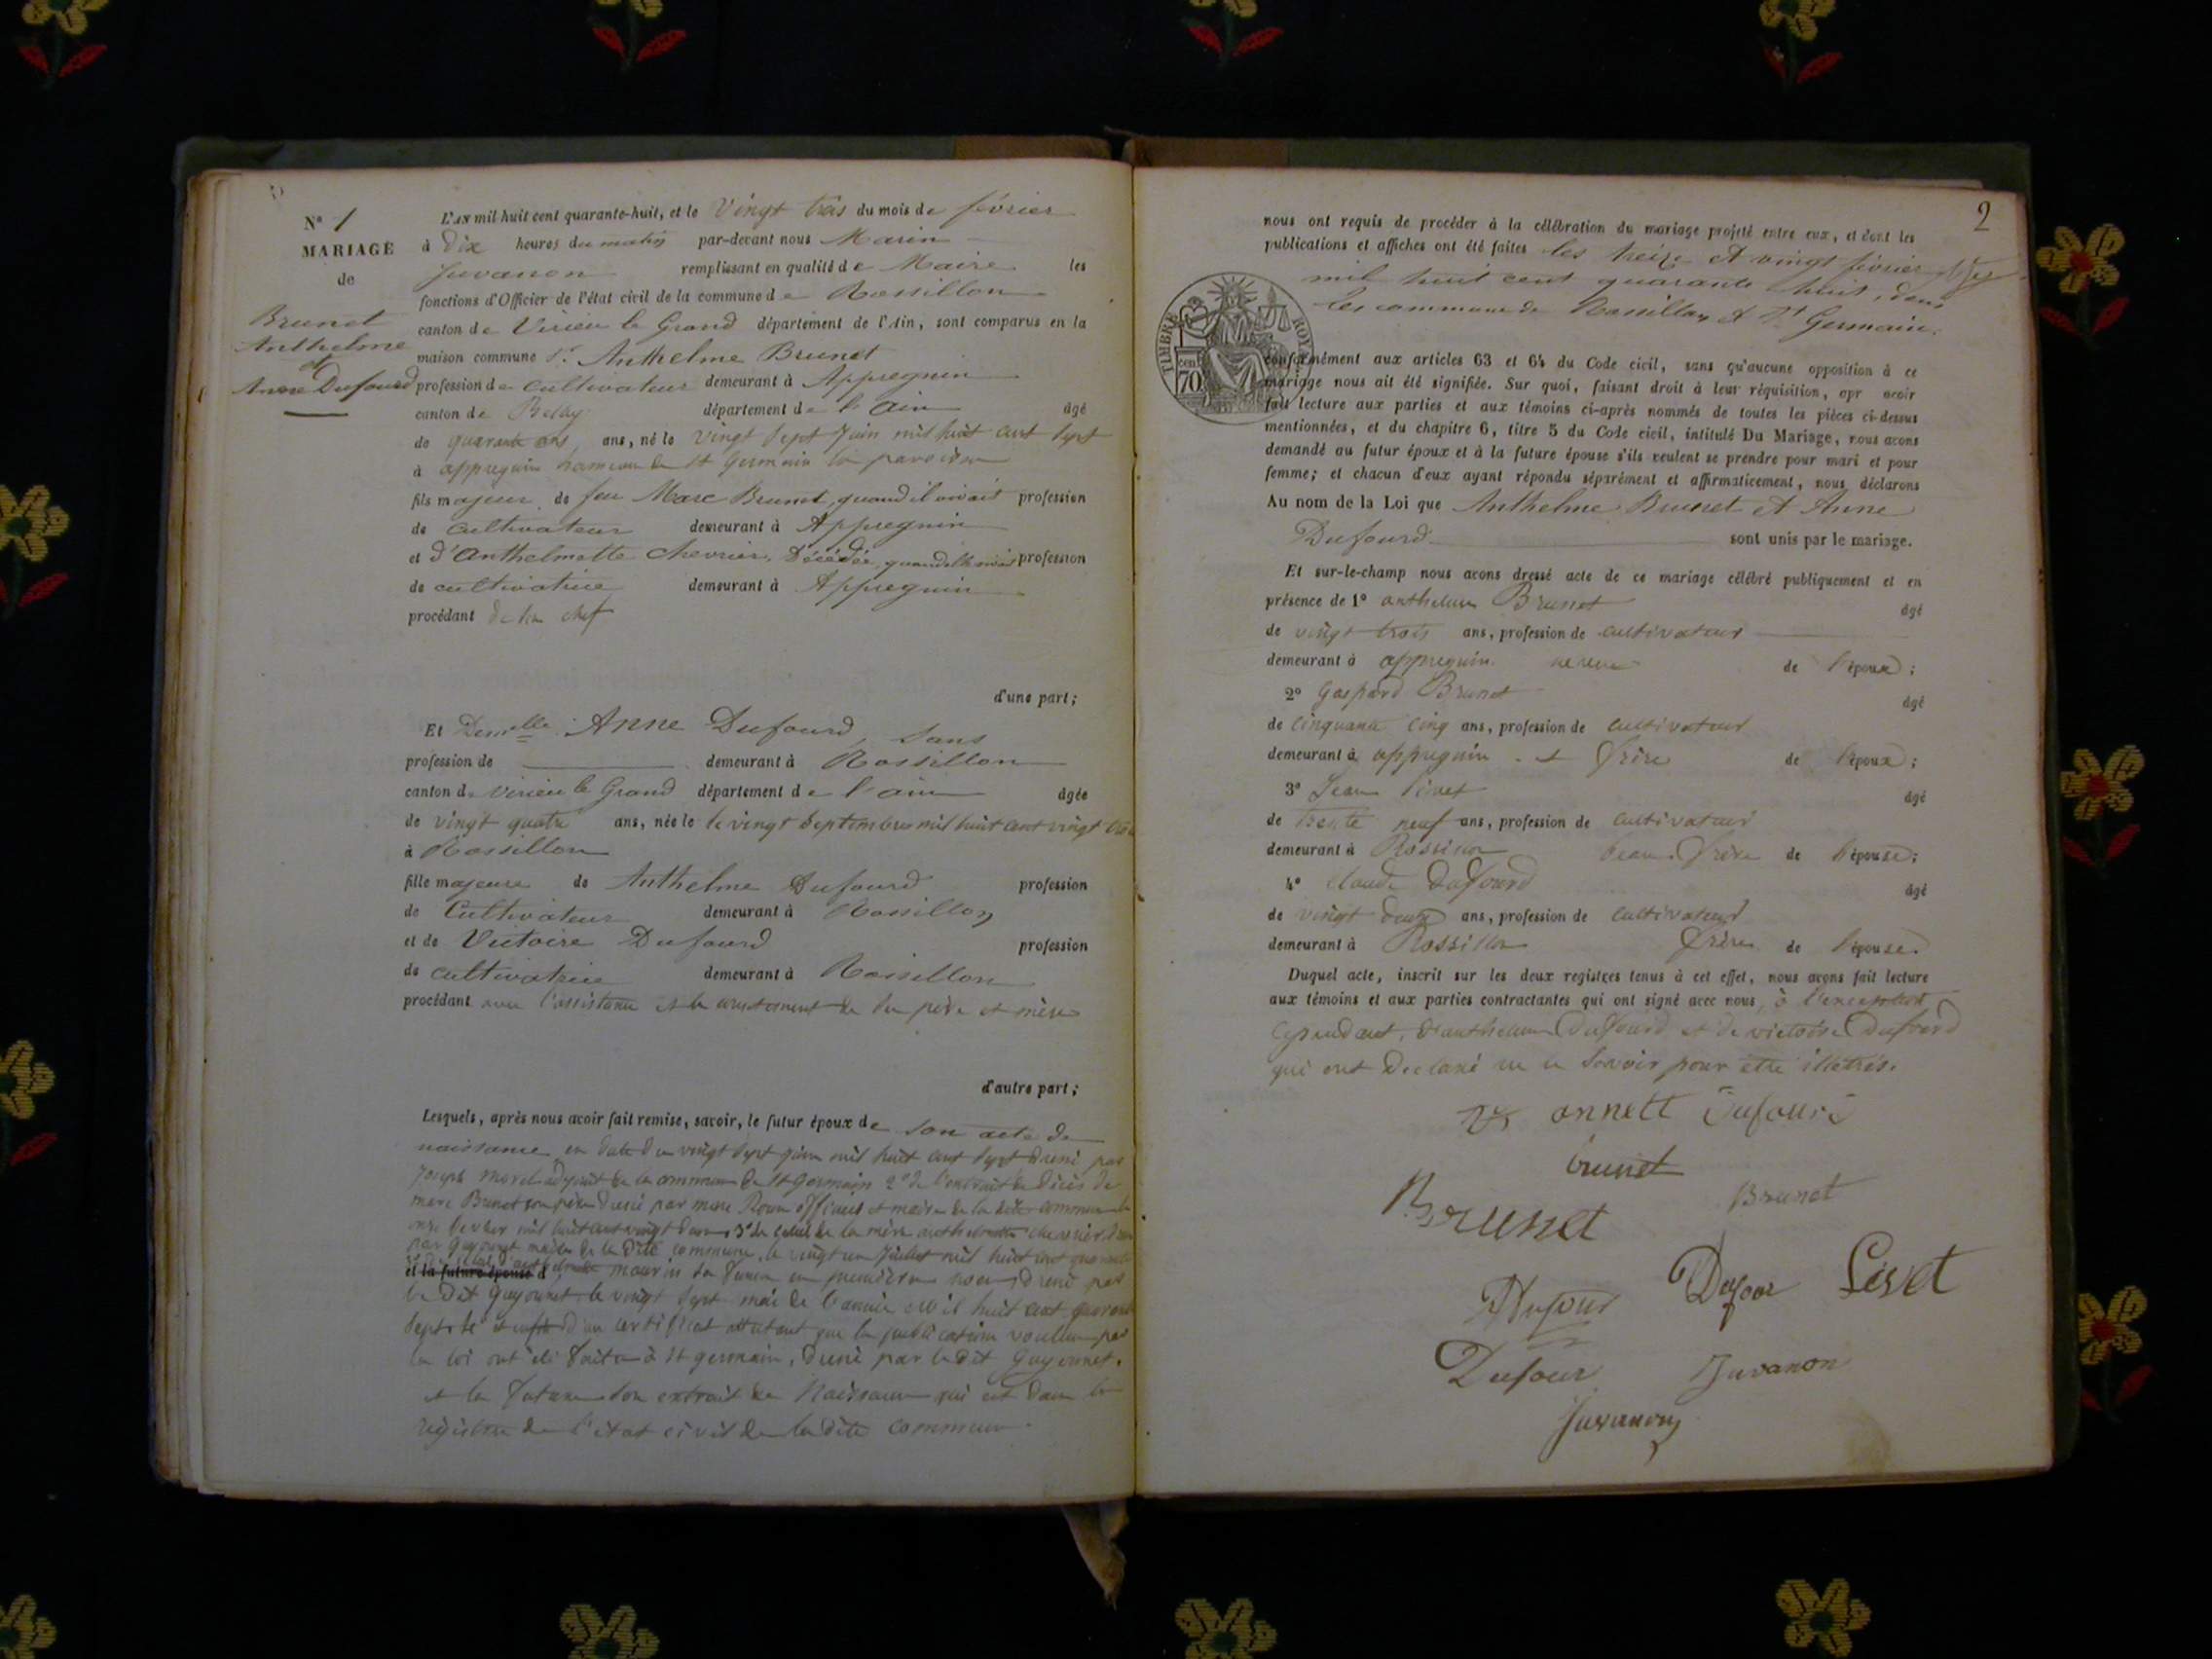 N° 1
MARIAGE
de
Brunet
Anthelme
et
Anne Dufourd
L'AN mil huit cent quarante-huit, et le Vingt trois du mois de février
à Dix heures du matin par-devant nous Marin
Juvanon remplissant en qualité de Maire les
fonctions d'Officier de l'état civil de la commune de Rossillon
canton de Virieu le Grand département de l'Ain, sont comparus en la
maison commune Sr Anthelme Brunet
profession de cultivateur demeurant à Appregnin
canton de Belley département de l'ain âgé
de quarante ans, ans, né le vingt sept Juin mil huit cent sept
à appregnin hameau de St Germain les paroisses
fils majeur de feu Marc Brunet, quand il vivait profession
de cultivateur demeurant à Appregnin
et d'Anthelmette Chevrier, Décédée, quand elle vivait profession
de cultivatrice demeurant à Appregnin
procédant de son chef
d'une part;
Et Demelle Anne Dufourd, sans
profession de demeurant à Rossillon
canton de Virieu le Grand département de l'ain âgée
de vingt quatre ans, née le le vingt septembre mil huit cent vingt trois
à Rossillon
fille majeure de Anthelme Dufourd profession
de Cultivateur demeurant à Rossillon
et de Victoire Dufourd profession
de cultivatrice demeurant à Rossillon
procédant avec l'assistance et le consentement de ses père et mère
d'autre part;
Lesquels, après nous avoir fait remise, savoir, le futur époux de son acte de
naissance en date du vingt sept juin mil huit cent sept dressé par
Joseph Morel adjoint de la commune de St Germain 2° de l'extrait de décès de
marc Brunet son père dressé par officier et maire de la dite commune le
mil huit cent vingt 3° de celui de la mère anthelmette chevrier
par Guyonnet maire de la dite commune, le vingt un Juillet mil huit cent
et la future épouse d
le Dit Guyonnet, le vingt sept mai de l'année mil huit cent quarante
sept et enfin d'un certificat attestant que les publications voulues par
la loi ont été faites à St germain, dressé par le dit Guyonnet.
et la future son extrait de Naissance qui est dans le
registre de l'état civil de la dite commune.
2
nous ont requis de procéder à la célébration du mariage projeté entre eux, et dont les
publications et affiches ont été faites les treize et vingt février
mil huit cent quarante huit, dans
les commune de Rossillon et St Germain.
TIMBRE ROYAL
cent
70
conformément aux articles 63 et 64 du Code civil, sans qu'aucune opposition à ce
mariage nous ait été signifiée. Sur quoi, faisant droit à leur réquisition, apr avoir
fait lecture aux parties et aux témoins ci-après nommés de toutes les pièces ci-dessus
mentionnées, et du chapitre 6, titre 5 du Code civil, intitulé Du Mariage, nous avons
demandé au futur époux et à la future épouse s'ils veulent se prendre pour mari et pour
femme; et chacun d'eux ayant répondu séparément et affirmativement, nous déclarons
Au nom de la Loi que Anthelme Brunet et Anne
Dufourd sont unis par le mariage.
Et sur-le-champ nous avons dressé acte de ce mariage célébré publiquement et en
présence de 1° anthelme Brunet âgé
de vingt trois ans, profession de cultivateur
demeurant à appregnin neveu de l'époux;
2° Gaspard Brunet âgé
de cinquante cinq ans, profession de cultivateur
demeurant à appregnin frère de l'époux;
3° Jean âgé
de trente neuf ans, profession de cultivateur
demeurant à Rossillon beau frère de l'épouse;
4° Claude Dufourd âgé
de vingt deux ans, profession de cultivateur
demeurant à Rossillon frère de l'épouse.
Duquel acte, inscrit sur les deux registres tenus à cet effet, nous avons fait lecture
aux témoins et aux parties contractantes qui ont signé avec nous, à l'exception
cependant, d'anthelme Dufourd et de victoire Dufourd
qui ont declaré ne le savoir pour être illetrés.
annett Dufourd
brunet
Brunet
Brunet
Dufour
Dufour
Dufour
Juvanon
Juvanon